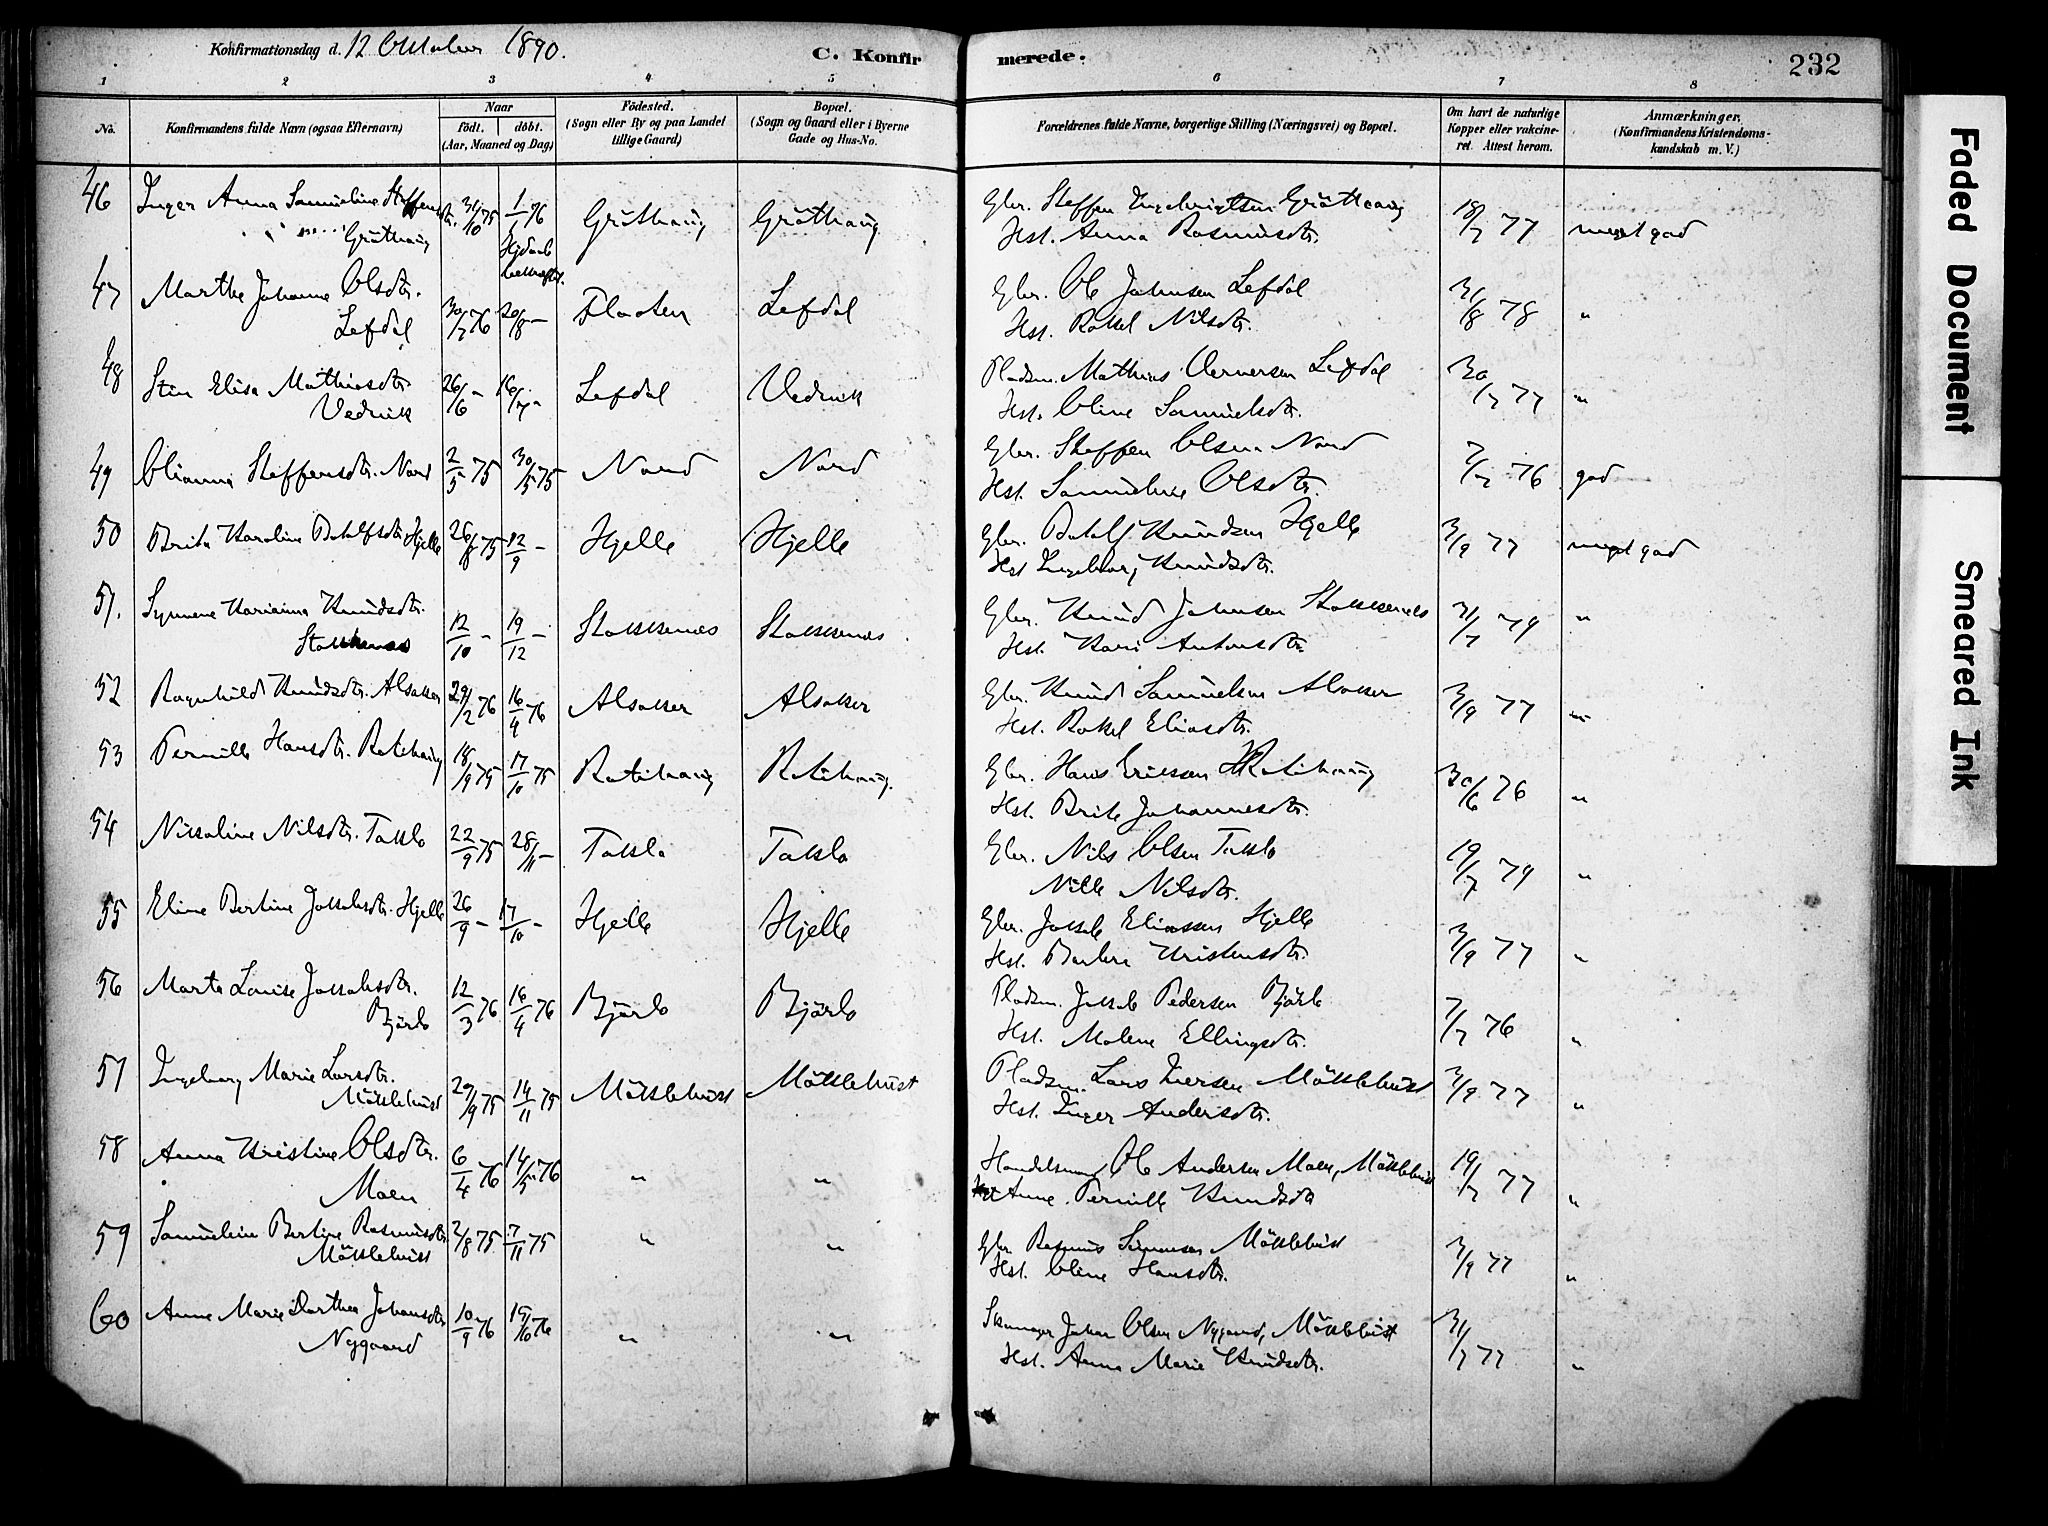 Konfirmationsdag d. 12 Oktober 1890.
C. Konfirmerede.
232
1 2 3 4 5 6 7 8
No.
Konfirmandens fulde Navn (ogsaa Efternavn)
Naar
födt. döbt.
(Aar, Maaned og Dag)
Födested.
(Sogn eller By og paa Landet tillige Gaard)
Bopæl.
(Sogn og Gaard eller i Byerne Gade og Hus-No.
Forældrenes fulde Navne, borgerlige Stilling (Næringsvei) og Bopæl.
Om havt de naturlige Kopper eller vakcineret. Attest herom.
Anmærkninger.
(Konfirmandens Kristendomskundskab m. V.)
46 Inger Anna Samueline Steffensdtr. 31/10 75 1/1 76 Gröthaug Gröthaug Gbr. Steffen Ingebrigtsen Gröthaug 18/7 77 meget god
Gröthaug Hjdøb bekræftet. Hst. Anna Rasmusdtr.
47 Marthe Johanne Olsdtr. Gbr. Ole Johnsen Lefdal
Lefdal 30/7 76 20/8 – Floten Lefdal Hst. Rakel Nilsdtr. 31/8 78 "
48 Stine Elisa Mathiasdtr. 26/6 – 16/7 – Lefdal Vedvik Pladsm. Mathias Vernersen Lefdal 30/7 77 "
Vedvik Hst. Oline Samuelsdtr.
49 Olianna Steffensdtr. Nord 2/5 75 30/5 75 Nord Nord Gbr. Steffen Olsen Nord 7/7 76 god
Hst. Samueline Olsdtr.
50 Brita Karoline Botolfsdtr. Hjelle 26/8 75 12/9 – Hjelle Hjelle Gbr. Botolf Knudsen Hjelle 3/9 77 meget god
Hst. Ingeborg Knudsdtr.
51. Synneve Karianna Knudsdtr. Gbr. Knud Johnsen Stokkenes 31/7 79 "
Stokkenes 12/10 – 19/12 – Stokkenæs Stokkenæs Hst. Kari Antonsdtr.
52 Ragnhild Knudsdtr. Alsaker 29/2 76 16/4 76 Alsaker Alsaker Gbr. Knud Samuelsen Alsaker 3/9 77 "
Hst. Rakel Eliasdtr.
53 Pernille Hansdtr. Rotihaug 18/9 75 17/10 75 Rotihaug Rotihaug. Gbr. Hans Eriksen Rotihaug 30/6 76 "
Hst. Brite Johannesdtr.
54 Nikoline Nilsdtr. Taklo 22/9 75 28/11 – Taklo Taklo Gbr. Nils Olsen Taklo 19/7 79 "
Nille Nilsdtr.
55 Eline Bertine Jakobsdtr. Hjelle 26/9 – 17/10 – Hjelle Hjelle Gbr. Jakob Eliassen Hjelle 3/9 77 "
Hst. Barbra Kristensdtr.
56 Marta Louise Jakobsdtr. 12/3 76 16/4 76 Bjørlo Bjørlo Pladsm. Jakob Pedersen Bjørlo 7/7 76 "
Bjørlo Hst. Malene Ellingsdtr.
57 Ingeborg Marie Larsdtr. 29/9 75 14/11 75 Möklebust Möklebust Pladsm. Lars Iversen Möklebust 3/9 77 "
Möklebust Hst. Inger Andersdtr.
58 Anna Kristine Olsdtr. 6/4 76 14/5 76 " " Handelsmand Ole Andersen Moen, Möklebust 19/7 77 "
Moen Hst Anne Pernille Knudsdtr
59 Samueline Bertine Rasmusdtr. 2/8 75 7/11 75 " " Gbr. Rasmus Simonsen Möklebust 3/9 77 "
Möklebust Hst. Oline Hansdtr.
60 Anne Marie Dorthea Johansdtr 10/9 76 15/10 76 " " Skomager Johan Olsen Nygaard, Möklebust 31/7 77 "
Nygaard Hst. Anna Marie Knudsdtr.
Faded Document
Smeared Ink